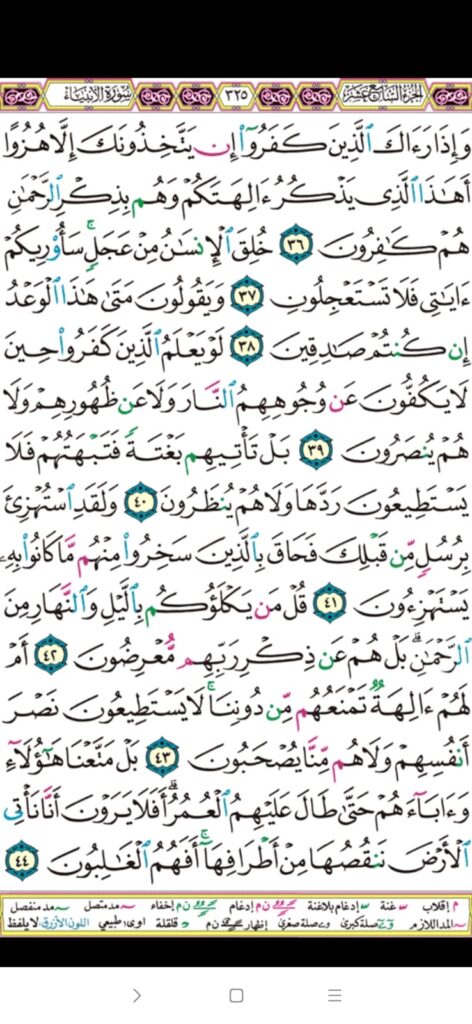 الجزء السابع عشر ٣٢٥ سورة الأنبياء
وَإِذَا رَءَاكَ ٱلَّذِينَ كَفَرُوٓا۟ إِن يَتَّخِذُونَكَ إِلَّا هُزُوًا
أَهَٰذَا ٱلَّذِى يَذْكُرُ ءَالِهَتَكُمْ وَهُم بِذِكْرِ ٱلرَّحْمَٰنِ
هُمْ كَٰفِرُونَ ٣٦ خُلِقَ ٱلْإِنسَٰنُ مِنْ عَجَلٍ ۚ سَأُو۟رِيكُمْ
ءَايَٰتِى فَلَا تَسْتَعْجِلُونِ ٣٧ وَيَقُولُونَ مَتَىٰ هَٰذَا ٱلْوَعْدُ
إِن كُنتُمْ صَٰدِقِينَ ٣٨ لَوْ يَعْلَمُ ٱلَّذِينَ كَفَرُوا۟ حِينَ
لَا يَكُفُّونَ عَن وُجُوهِهِمُ ٱلنَّارَ وَلَا عَن ظُهُورِهِمْ وَلَا
هُمْ يُنصَرُونَ ٣٩ بَلْ تَأْتِيهِم بَغْتَةً فَتَبْهَتُهُمْ فَلَا
يَسْتَطِيعُونَ رَدَّهَا وَلَا هُمْ يُنظَرُونَ ٤٠ وَلَقَدِ ٱسْتُهْزِئَ
بِرُسُلٍ مِّن قَبْلِكَ فَحَاقَ بِٱلَّذِينَ سَخِرُوا۟ مِنْهُم مَّا كَانُوا۟ بِهِۦ
يَسْتَهْزِءُونَ ٤١ قُلْ مَن يَكْلَؤُكُم بِٱلَّيْلِ وَٱلنَّهَارِ مِنَ
ٱلرَّحْمَٰنِ ۗ بَلْ هُمْ عَن ذِكْرِ رَبِّهِم مُّعْرِضُونَ ٤٢ أَمْ
لَهُمْ ءَالِهَةٌ تَمْنَعُهُم مِّن دُونِنَا ۚ لَا يَسْتَطِيعُونَ نَصْرَ
أَنفُسِهِمْ وَلَا هُم مِّنَّا يُصْحَبُونَ ٤٣ بَلْ مَتَّعْنَا هَٰٓؤُلَآءِ
وَءَابَآءَهُمْ حَتَّىٰ طَالَ عَلَيْهِمُ ٱلْعُمُرُ ۗ أَفَلَا يَرَوْنَ أَنَّا نَأْتِى
ٱلْأَرْضَ نَنقُصُهَا مِنْ أَطْرَافِهَآ ۚ أَفَهُمُ ٱلْغَٰلِبُونَ ٤٤
م إقلاب غنة إدغام بلاغنة ن م إدغام ن م إخفاء مد متصل مد منفصل
المد اللازم صلة كبرى صلة صغرى إظهار ن م قلقلة اوى طبيعي اللون الأزرق: لا يلفظ